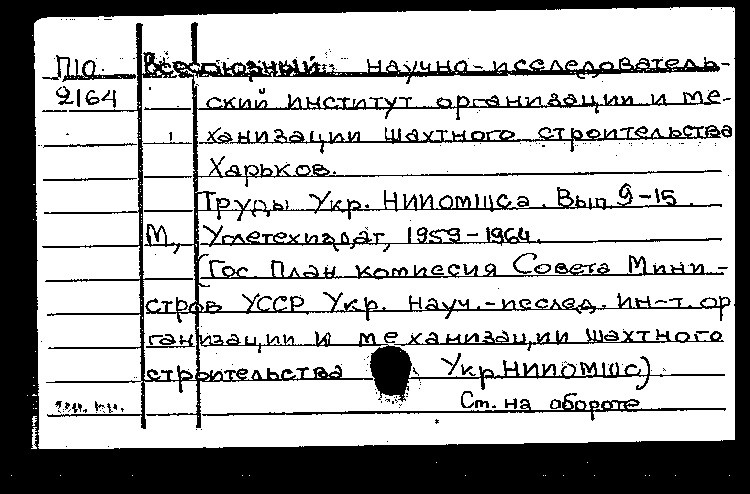 П10 Всесоюзный научно-исследователь-
2164 ский институт организации и ме-
ханизации шахтного строительства
Харьков.
Труды Укр. НИИОМШСа. Вып 9-15.
М., Углетехиздат, 1959-1964.
(Гос. План комиссия Совета Мини-
стров УССР Укр. науч.-исслед. ин-т. ор
ганизации и механизации шахтного
строительства Укр.НИИОМШС)
Ст. на обороте